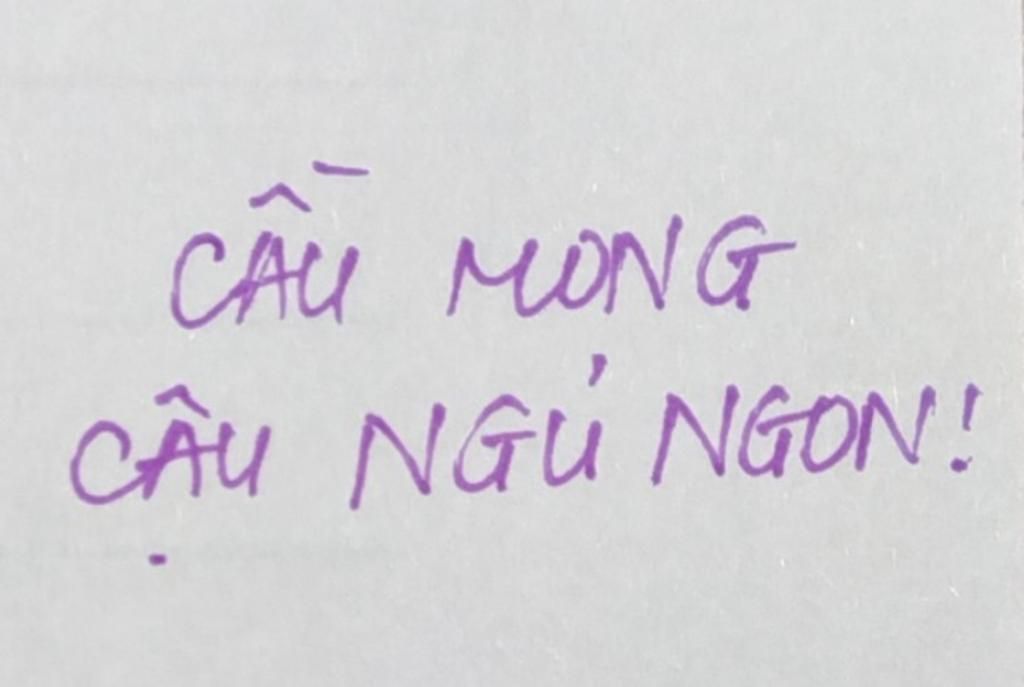 CẦU MONG
CẬU NGỦ NGON!